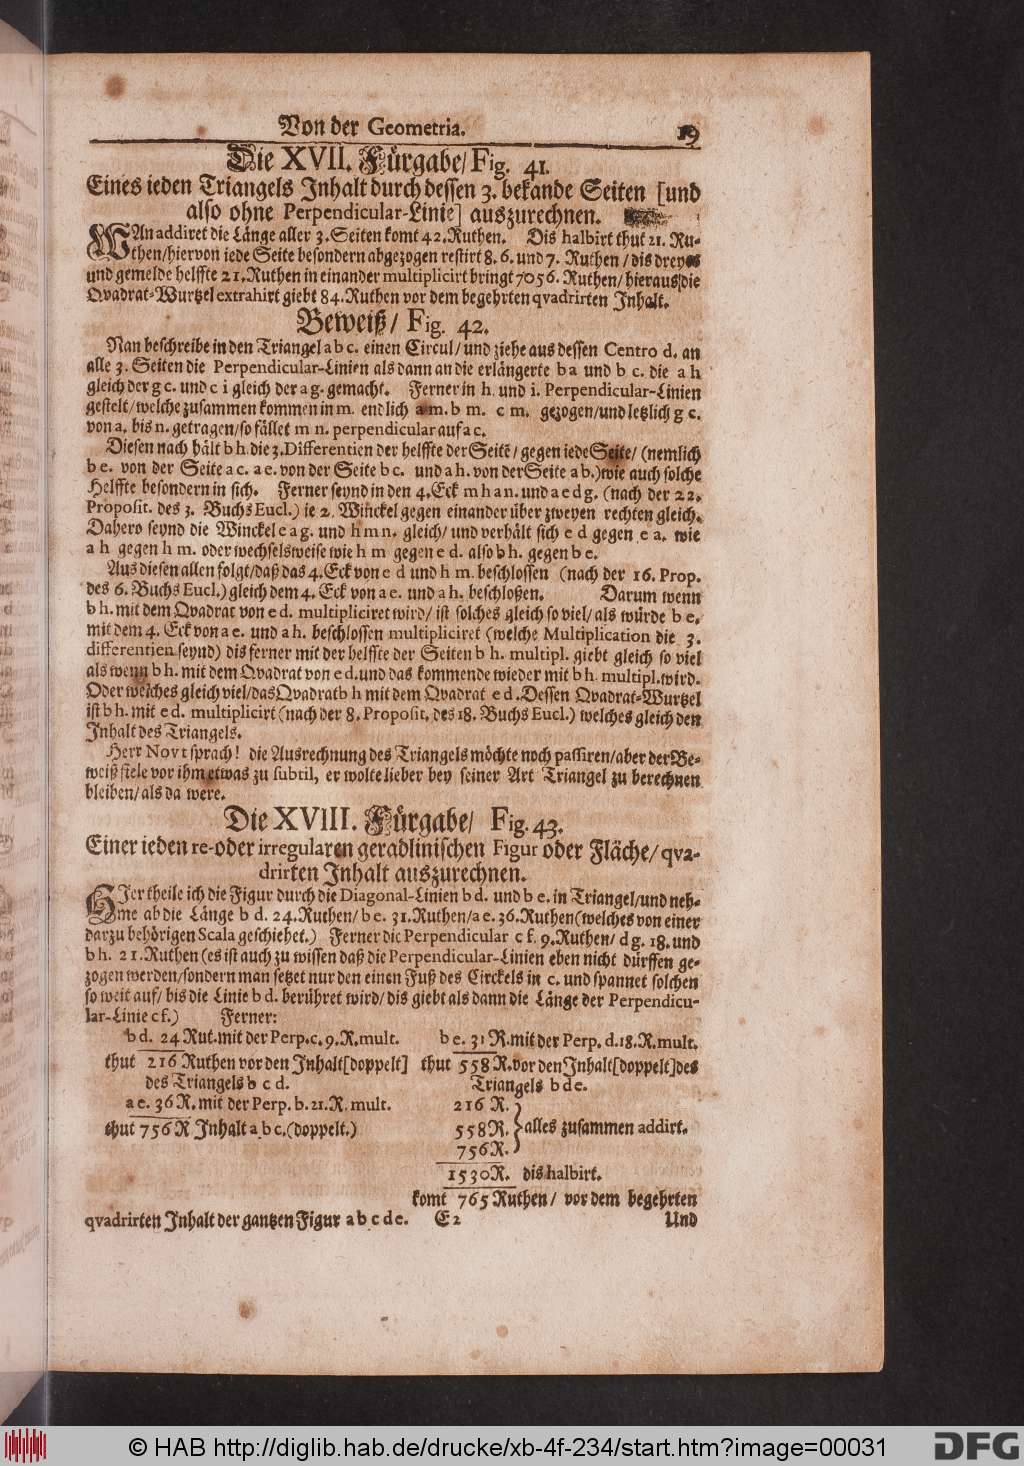 Von der Geometria. 19
Die XVII. Fürgabe/ Fig. 41.
Eines ieden Triangels Inhalt durch dessen 3. bekande Seiten [und
also ohne Perpendicular-Linie] auszurechnen.
WAn addiret die Länge aller 3. Seiten komt 42. Ruthen. Dis halbirt thut 21. Ru-
then/hiervon iede Seite besondern abgezogen restirt 8. 6. und 7. Ruthen / dis dreyes
und gemelde helffte 21. Ruthen in einander multiplicirt bringt 7056. Ruthen/ hieraus die
Qvadrat-Wurtzel extrahirt giebt 84. Ruthen vor dem begehrten qvadrirten Inhalt.
Beweiß/ Fig. 42.
Man beschreibe in den Triangel a b c. einen Circul/ und ziehe aus dessen Centro d. an
alle 3. Seiten die Perpendicular-Linien als dann an die erlängerte b a und b c. die a h
gleich der g c. und c i gleich der a g. gemacht. Ferner in h. und i. Perpendicular-Linien
gestelt/ welche zusammen kommen in m. endlich a m. b m. c m. gezogen/ und letzlich g c.
von a. bis n. getragen/ so fället m n. perpendicular auf a c.
Diesen nach hält b h. die 3. Differentien der helffte der Seitẽ/ gegen iede Seite/ (nemlich
b e. von der Seite a c. a e. von der Seite b c. und a h. von der Seite a b.) wie auch solche
Helffte besondern in sich. Ferner seynd in den 4. Eck m h a n. und a e d g. (nach der 22.
Proposit. des 3. Buchs Eucl.) ie 2. Winckel gegen einander über zweyen rechten gleich.
Dahero seynd die Winckel e a g. und h m n. gleich/ und verhält sich e d gegen e a. wie
a h gegen h m. oder wechselsweise wie h m gegen e d. also b h. gegen b e.
Aus diesen allen folgt/ daß das 4. Eck von e d und h m. beschlossen (nach der 16. Prop.
des 6. Buchs Eucl.) gleich dem 4. Eck von a e. und a h. beschloßen. Darum wenn
b h. mit dem Qvadrat von e d. multipliciret wird/ ist solches gleich so viel/ als würde b e.
mit dem 4. Eck von a e. und a h. beschlossen multipliciret (welche Multiplication die 3.
differentien seynd) dis ferner mit der helffte der Seiten b h. multipl. giebt gleich so viel
als wenn b h. mit dem Qvadrat von e d. und das kommende wieder mit b h. multipl. wird.
Oder welches gleich viel/ das Qvadrat b h mit dem Qvadrat e d. Dessen Qvadrat-Wurtzel
ist b h. mit e d. multiplicirt (nach der 8. Proposit. des 18. Buchs Eucl.) welches gleich den
Inhalt des Triangels.
Herr Novt sprach! die Ausrechnung des Triangels möchte noch passiren/ aber der Be-
weiß fiele vor ihm etwas zu subtil, er wolte lieber bey seiner Art Triangel zu berechnen
bleiben/ als da were.
Die XVIII. Fürgabe/ Fig. 43.
Einer ieden re- oder irregularen geradlinischen Figur oder Fläche/ qva-
drirten Inhalt auszurechnen.
HIer theile ich die Figur durch die Diagonal-Linien b d. und b e. in Triangel/ und neh-
me ab die Länge b d. 24. Ruthen/ b e. 31. Ruthen/ a e. 36. Ruthen (welches von einer
darzu behörigen Scala geschiehet.) Ferner die Perpendicular c f. 9. Ruthen/ d g. 18. und
b h. 21. Ruthen (es ist auch zu wissen daß die Perpendicular-Linien eben nicht dürffen ge-
zogen werden/ sondern man setzet nur den einen Fuß des Circkels in c. und spannet solchen
so weit auf/ bis die Linie b d. berühret wird/ dis giebt als dann die Länge der Perpendicu-
lar-Linie c f.) Ferner:
b d. 24 Rut. mit der Perp. c. 9. R. mult. b e. 31 R. mit der Perp. d. 18. R. mult.
thut 216 Ruthen vor den Inhalt [doppelt] thut 558 R. vor den Inhalt [doppelt] des
des Triangels b c d. Triangels b d e.
a e. 36 R. mit der Perp. b. 21. R. mult. 216 R.
thut 756 R Inhalt a b c. (doppelt.) 558 R. alles zusammen addirt.
756 R.
1530 R. dis halbirt.
komt 765 Ruthen/ vor dem begehrten
qvadrirten Inhalt der gantzen Figur a b c d e. E 2 Und
© HAB http://diglib.hab.de/drucke/xb-4f-234/start.htm?image=00031 DFG